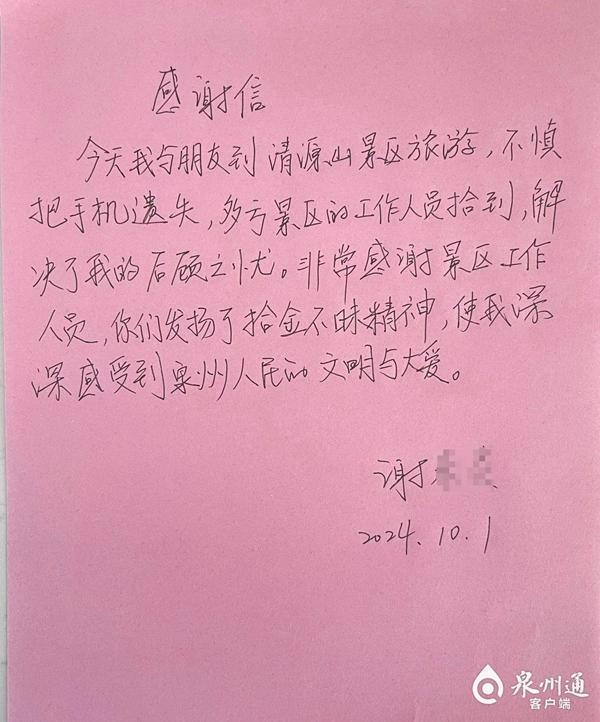 感谢信
今天我与朋友到清源山景区旅游,不慎
把手机遗失,多亏景区的工作人员拾到,解
决了我的后顾之忧。非常感谢景区工作
人员,你们发扬了拾金不昧精神,使我深
深感受到泉州人民的文明与大爱。
谢
2024.10.1
泉州通
客户端